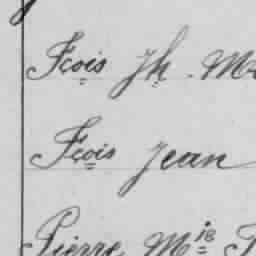 Fçois Jh. M
Fçois Jean
Pierre Mie